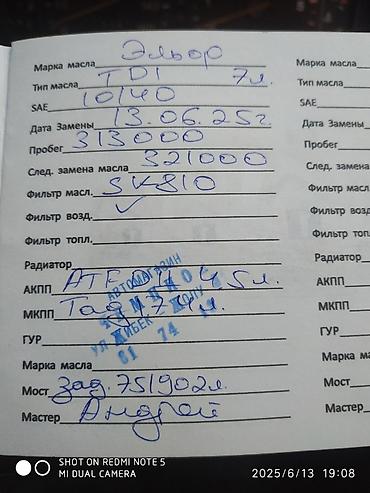 Марка масла Эльор
Тип масла TDI 7л.
SAE 10/40
Дата Замены 13.06.25г.
Пробег 313000
След. замена масла 321000
Фильтр масл. SK810
Фильтр возд. ✓
Фильтр топл.
Радиатор
АКПП ATF 4.5л.
МКПП
ГУР
Марка масла
Мост зад. 75/90 2л.
Мастер Андрей
АВТОМАГАЗИН
УЛ ЖИБЕК ЖОЛУ
81 74
Марка масла
Тип масла
SAE
Дата Замены
Пробег
След. замен
Фильтр масл
Фильтр возд
Фильтр топл
Радиатор
АКПП
МКПП
ГУР
Марка ма
Мост
Мастер
SHOT ON REDMI NOTE 5
MI DUAL CAMERA
2025/6/13 19:08